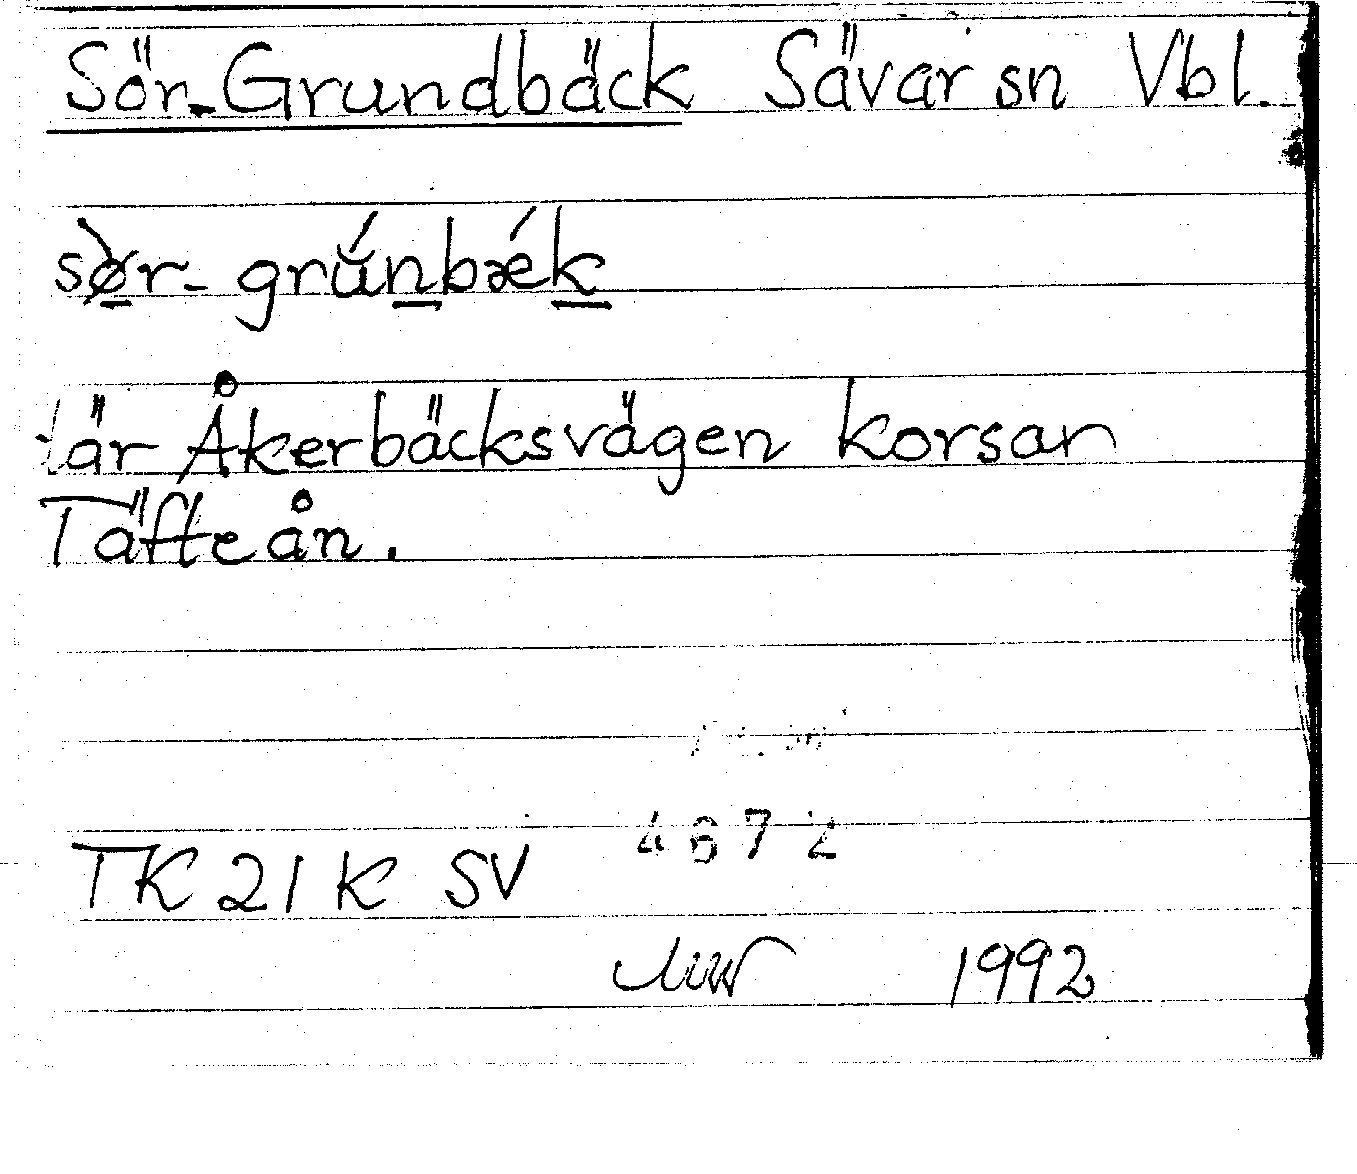 Sör-Grundbäck Sävar sn Vbl.
sø̀r- grŭ́nbǽk
där Åkerbäcksvägen korsar
Täfteån.
4672
TK 21 K SV
1992